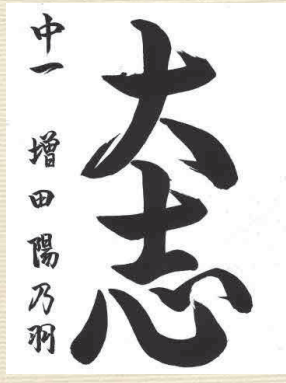 大志
中一 増田陽乃羽